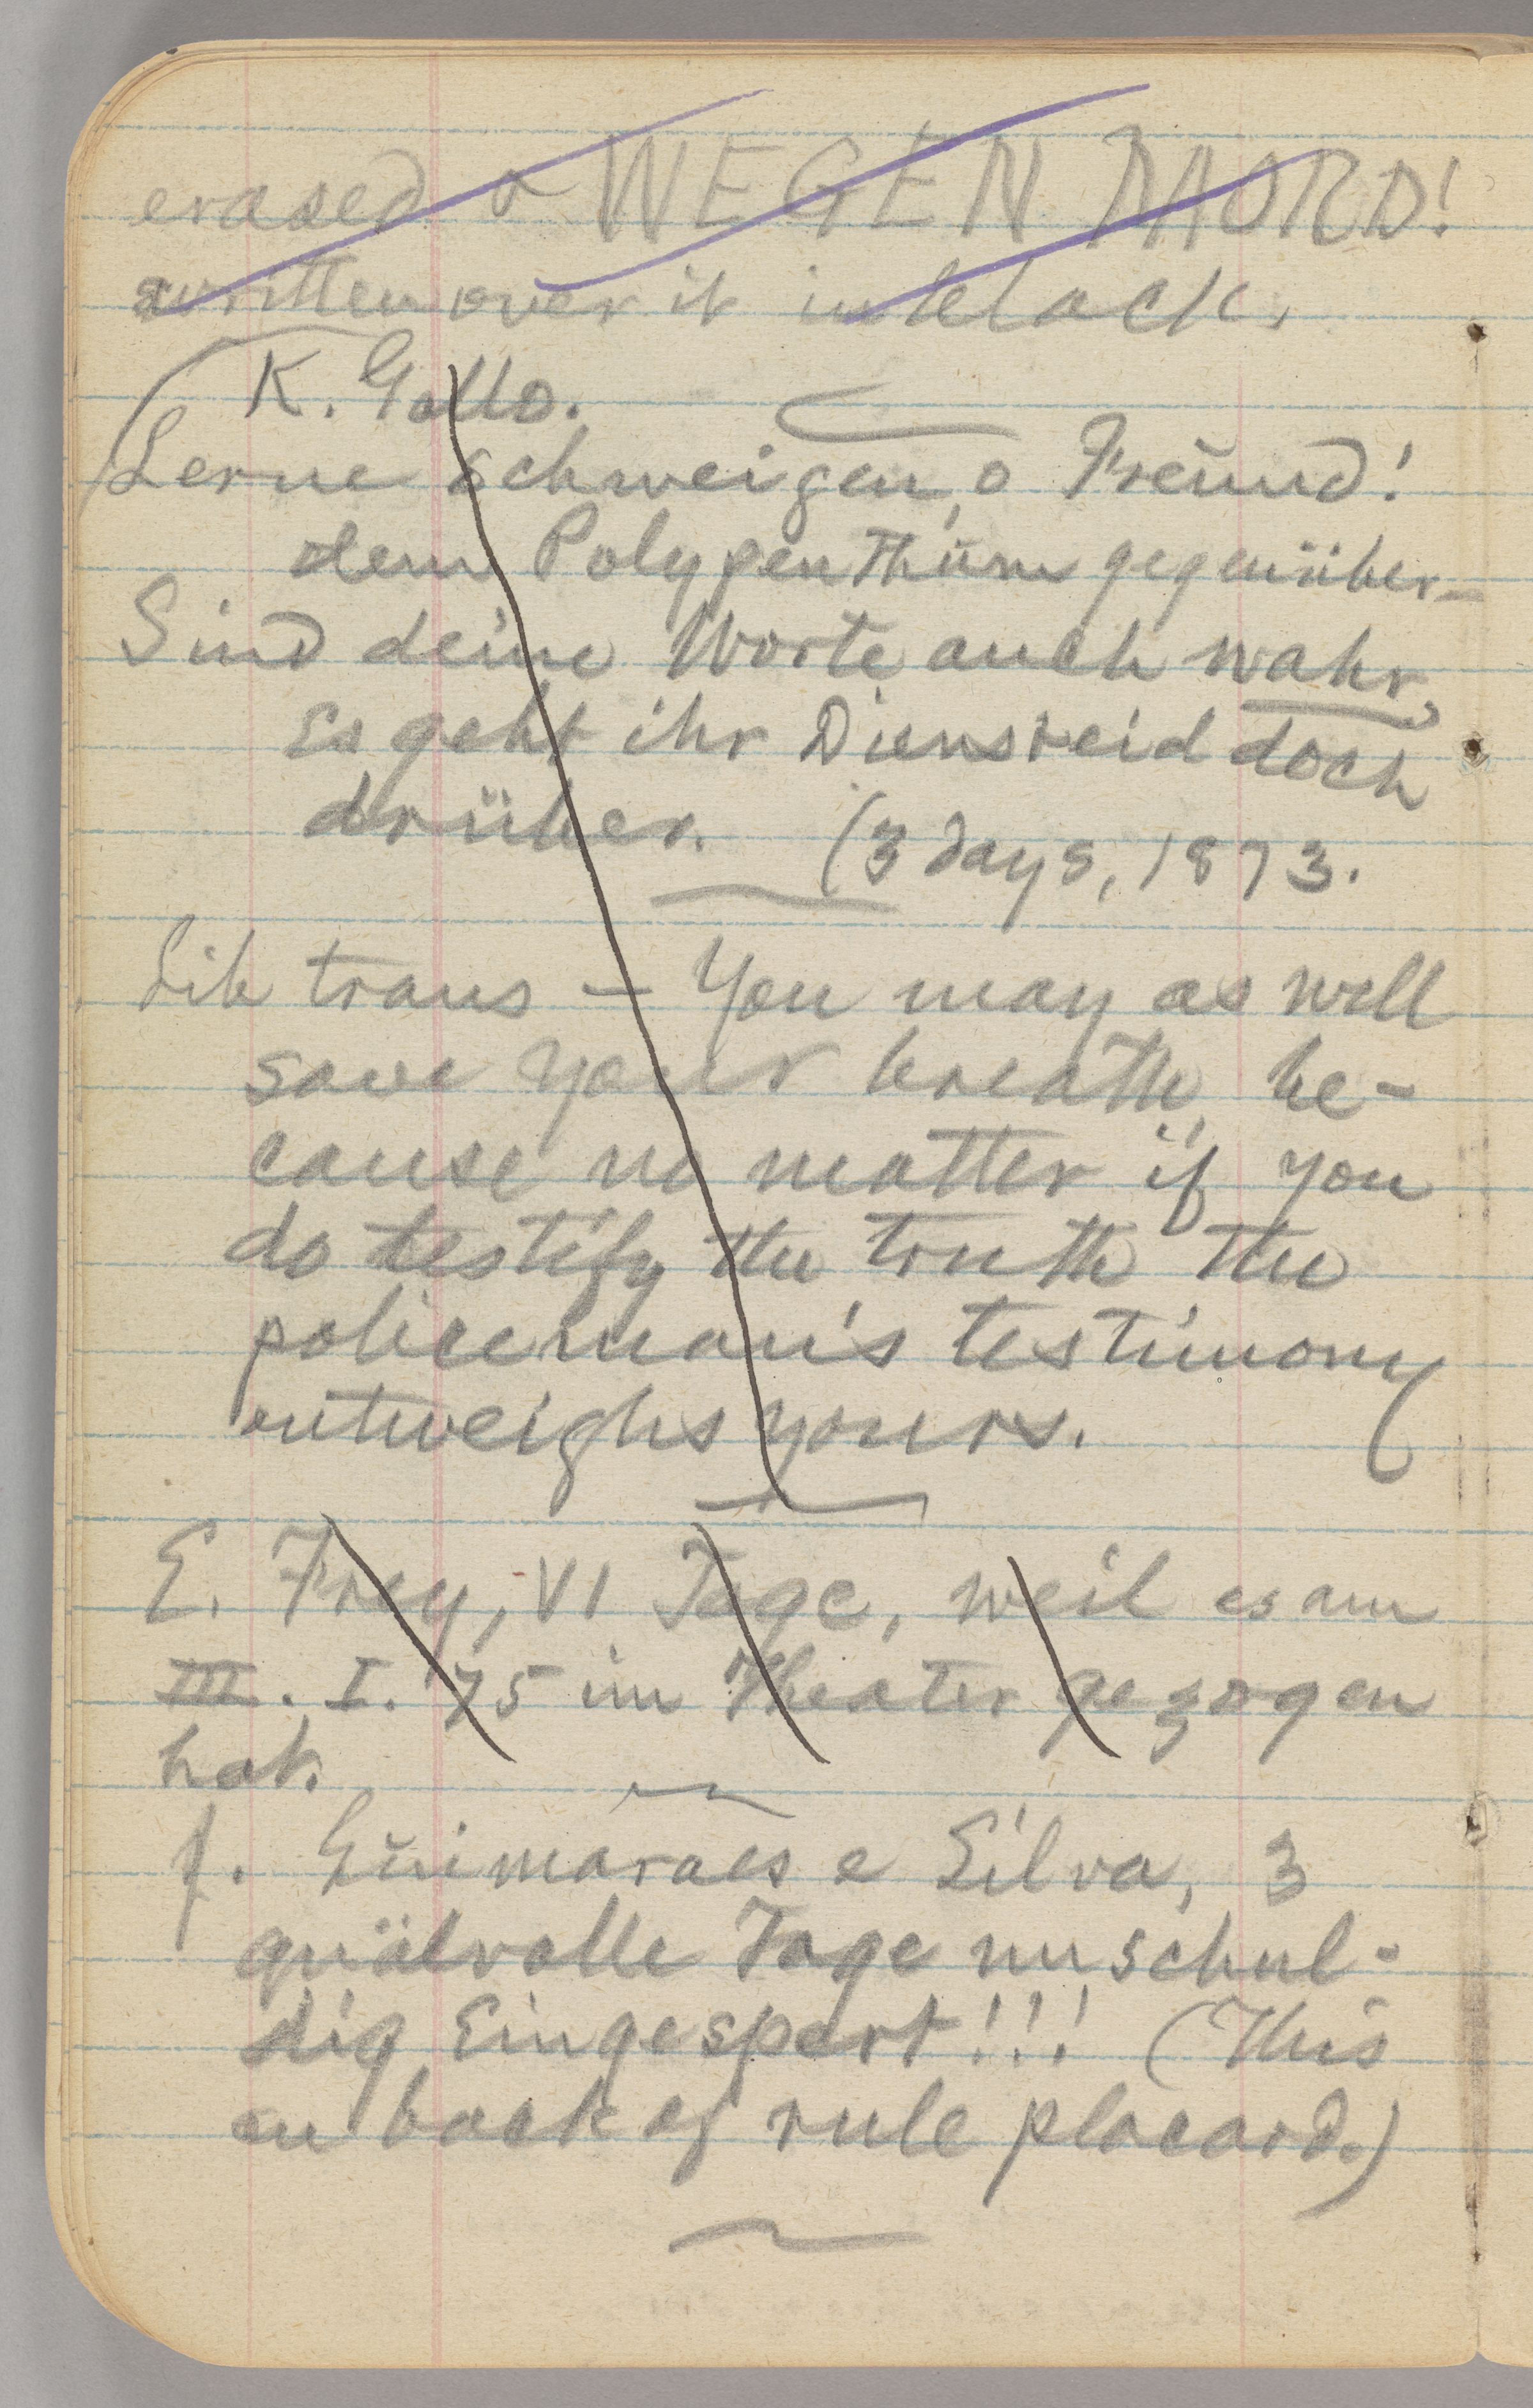 erased & WEGEN MORD!
written over it in black.
K. Gallo.
Lerne schweigen, o Freund!
dem Polypenthum gegenüber—
Sind deine Worte auch wahr,
Es geht ihr Diensteid doch
drüber. (3 days, 1873.
Lib trans — You may as well
save your breath, be-
cause no matter if you
do testify the truth the
policeman's testimony
outweighs yours.
E. Frey, VI Tage, weil es am
III. I. 75 im Theater gezogen
hat.
J. Guimaraes e Silva, 3
quälvolle Tage unschul-
dig Eingespert!!! (This
on back of rule placard.)